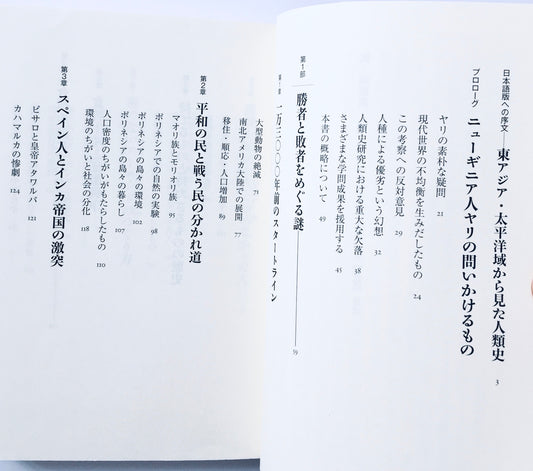 日本語版への序文――東アジア・太平洋域から見た人類史 3
プロローグ ニューギニア人ヤリの問いかけるもの
ヤリの素朴な疑問 21
現代世界の不均衡を生みだしたもの 24
この考察への反対意見 29
人種による優劣という幻想 32
人類史研究における重大な欠落 38
さまざまな学問成果を援用する 45
本書の概略について 49
第1部 勝者と敗者をめぐる謎 59
一万三〇〇〇年前のスタートライン
大型動物の絶滅 71
南北アメリカ大陸での展開 77
移住・順応・人口増加 89
第2章 平和の民と戦う民の分かれ道
マオリ族とモリオリ族 95
ポリネシアでの自然の実験 98
ポリネシアの島々の環境 102
ポリネシアの島々の暮らし 107
人口密度のちがいがもたらしたもの 110
環境のちがいと社会の分化 118
第3章 スペイン人とインカ帝国の激突
ピサロと皇帝アタワルパ 121
カハマルカの惨劇 124